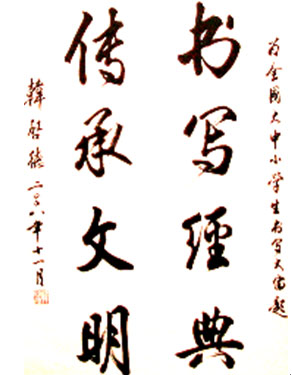 为全国大中小学生书写大赛题
书写经典
传承文明
韩启德二〇〇八年十一月